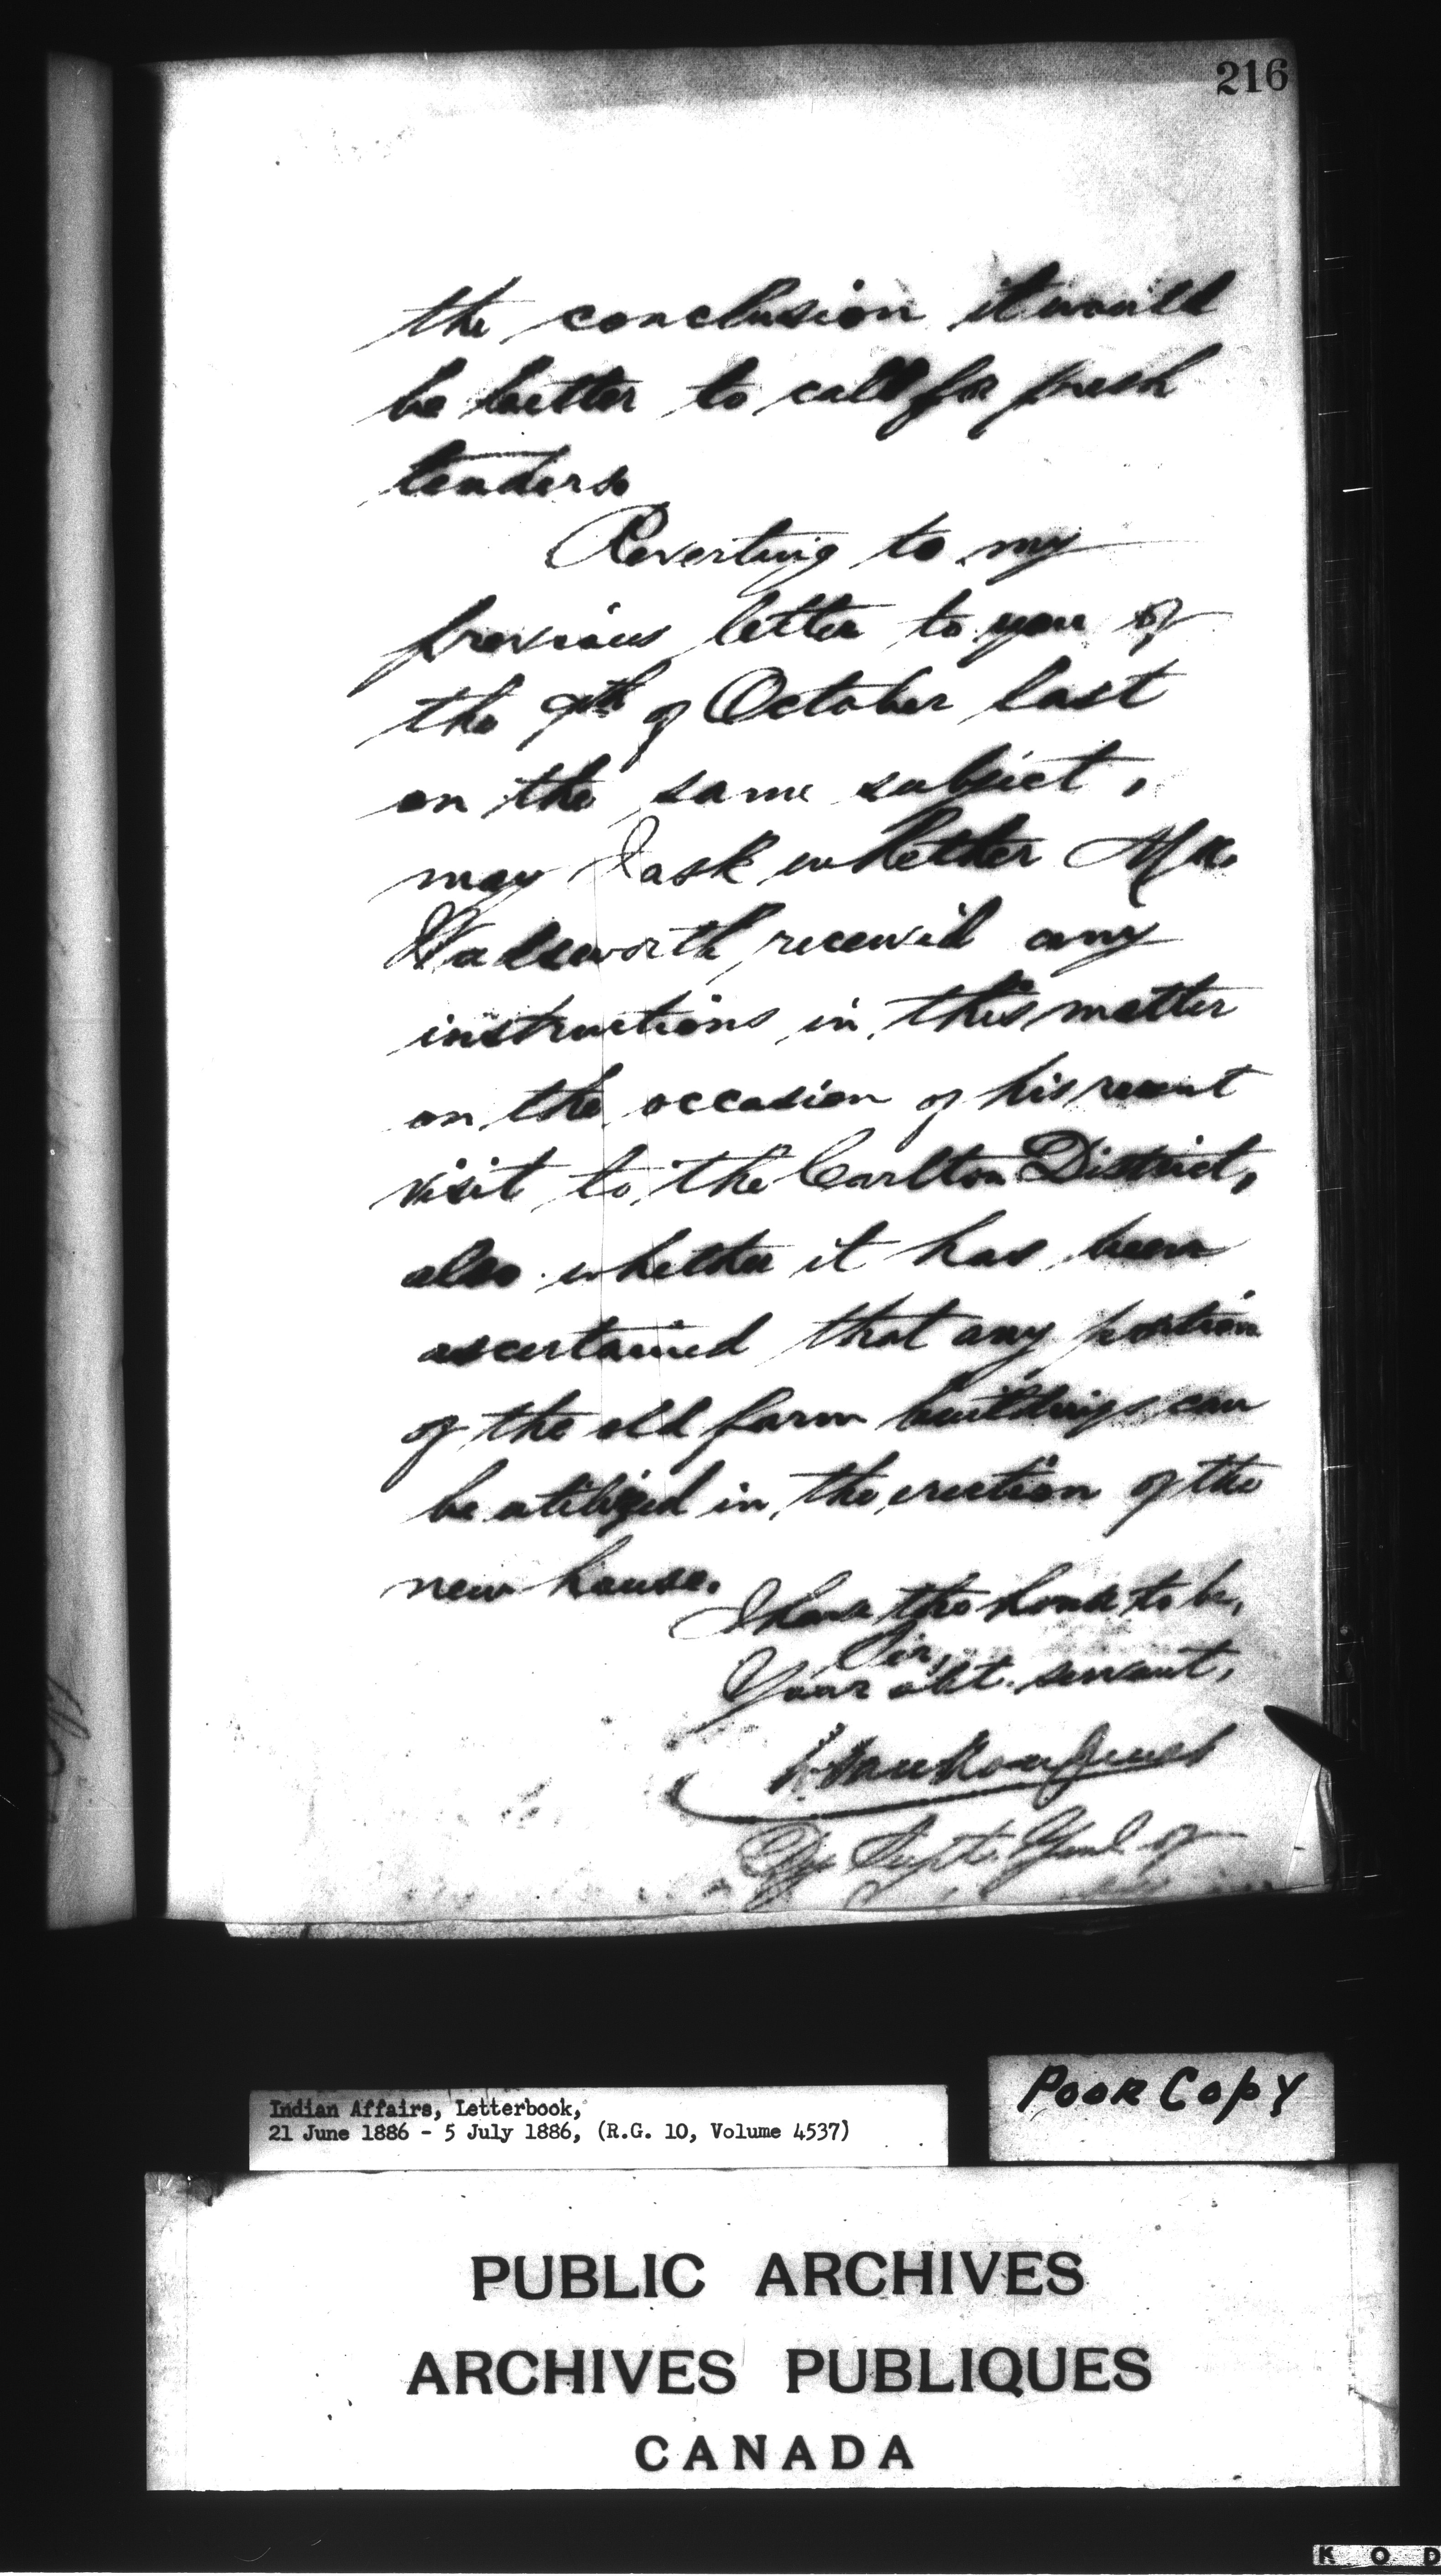 216
the conclusion it would
be better to call for fresh
tenders.
Reverting to my
previous letter to you of
the 9th of October last
on the same subject,
may I ask whether Mr.
Wadsworth received any
instructions in this matter
on the occasion of his recent
visit to the Carlton District,
also whether it has been
ascertained that any portion
of the old farm buildings can
be utilized in the erection of the
new house.
I have the honor to be,
Sir,
Your obt. servant,
L. Vankoughnet
Dy. Supt. Genl. of
Indian Affairs, Letterbook,
21 June 1886 - 5 July 1886, (R.G. 10, Volume 4537)
POOR COPY
PUBLIC ARCHIVES
ARCHIVES PUBLIQUES
CANADA
K O D